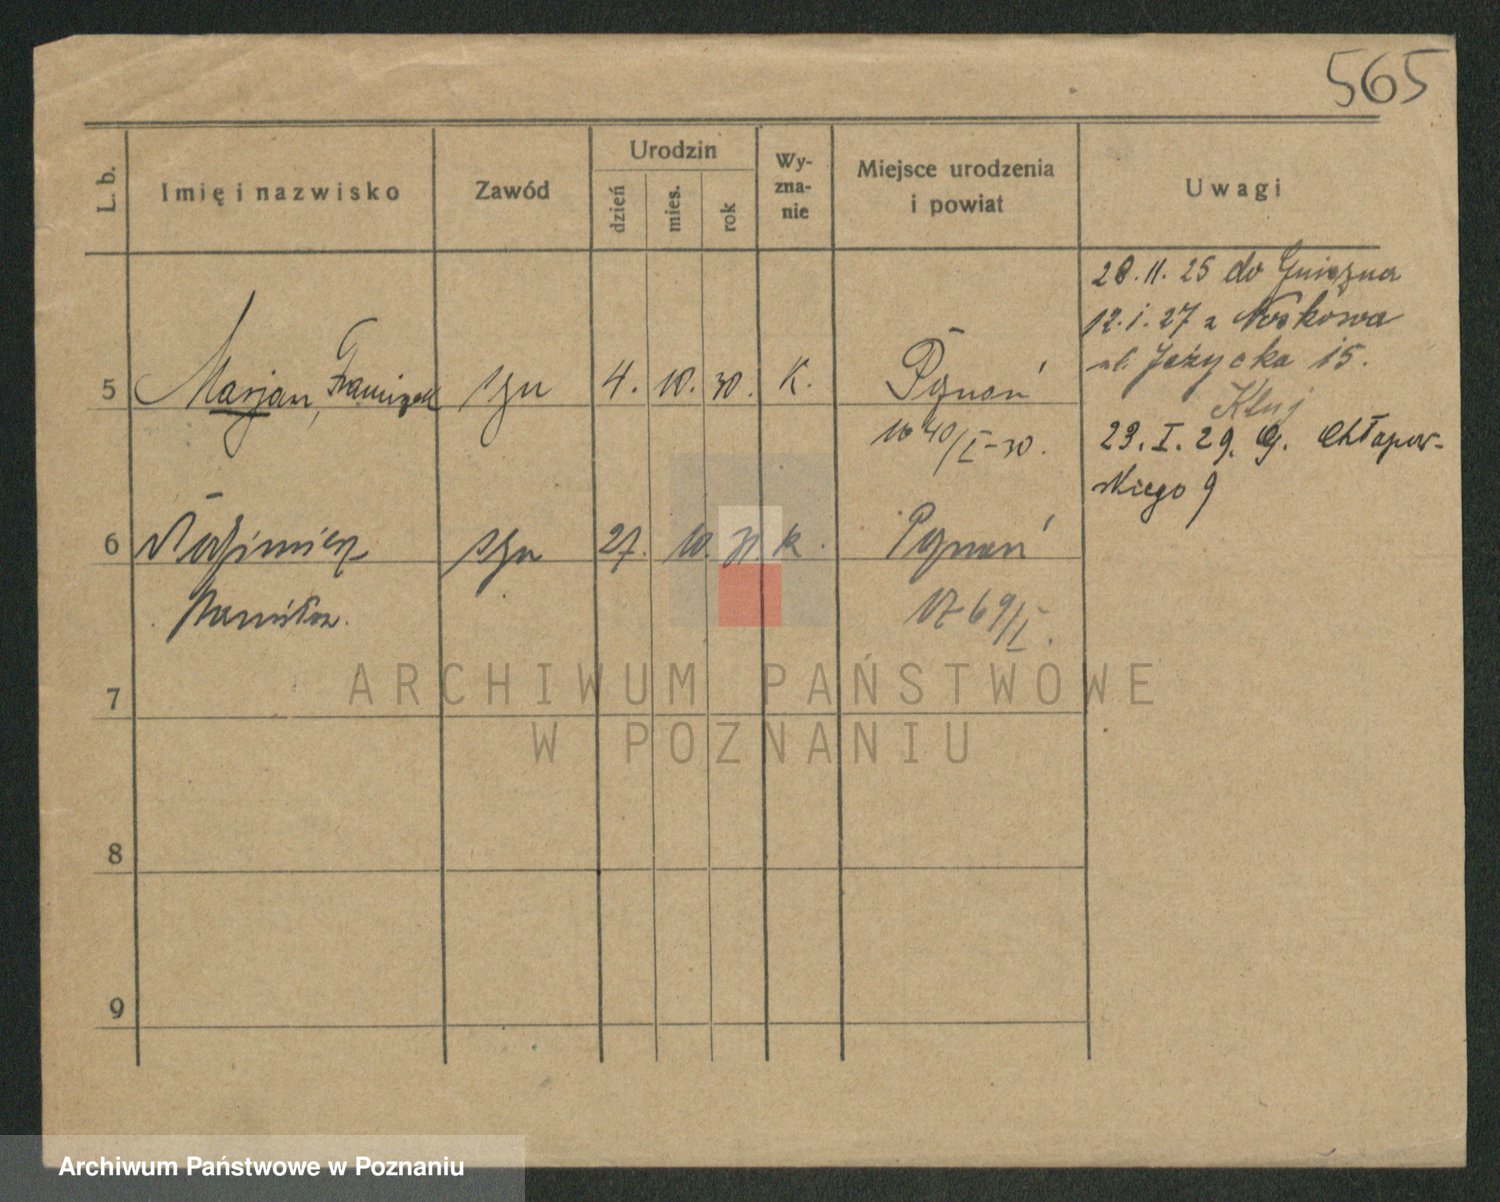 565
L. b.
Imię i nazwisko
Zawód
Urodzin
dzień
mies.
rok
Wy-
zna-
nie
Miejsce urodzenia
i powiat
Uwagi
5
Marjan, Franciszek
syn
4. 10. 30.
K.
Poznań
40/I-30.
6
Kazimierz
Stanisław.
syn
27. 10. 31.
K.
Poznań
1769/I.
7
8
9
28. 11. 25 do Gniezna
12. I. 27 z Noskowa
ul. Jeżycka 15.
Kluj
29. I. 29. G. Chłapow-
skiego 9
ARCHIWUM PAŃSTWOWE
W POZNANIU
Archiwum Państwowe w Poznaniu